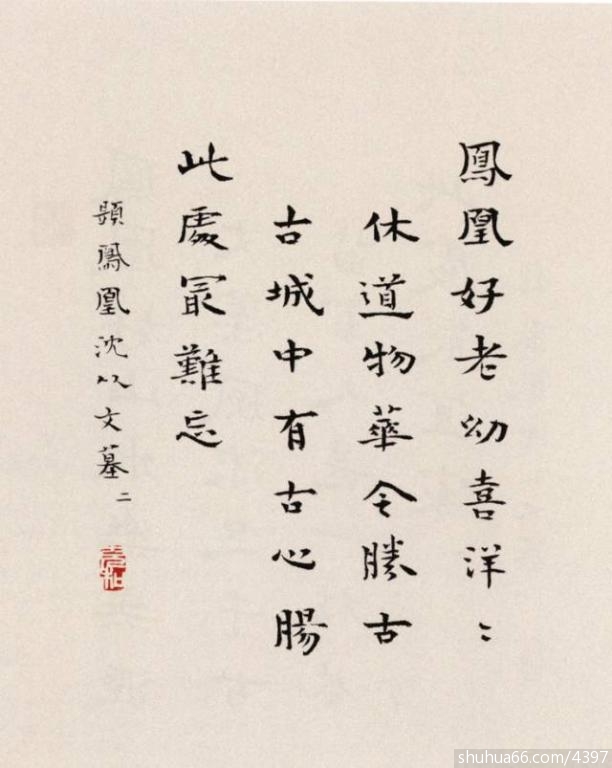 鳳凰好老幼喜洋〻
休道物華今勝古
古城中有古心腸
此處冣難忘
題鳳凰沈從文墓 二
shuhua66.com/4397